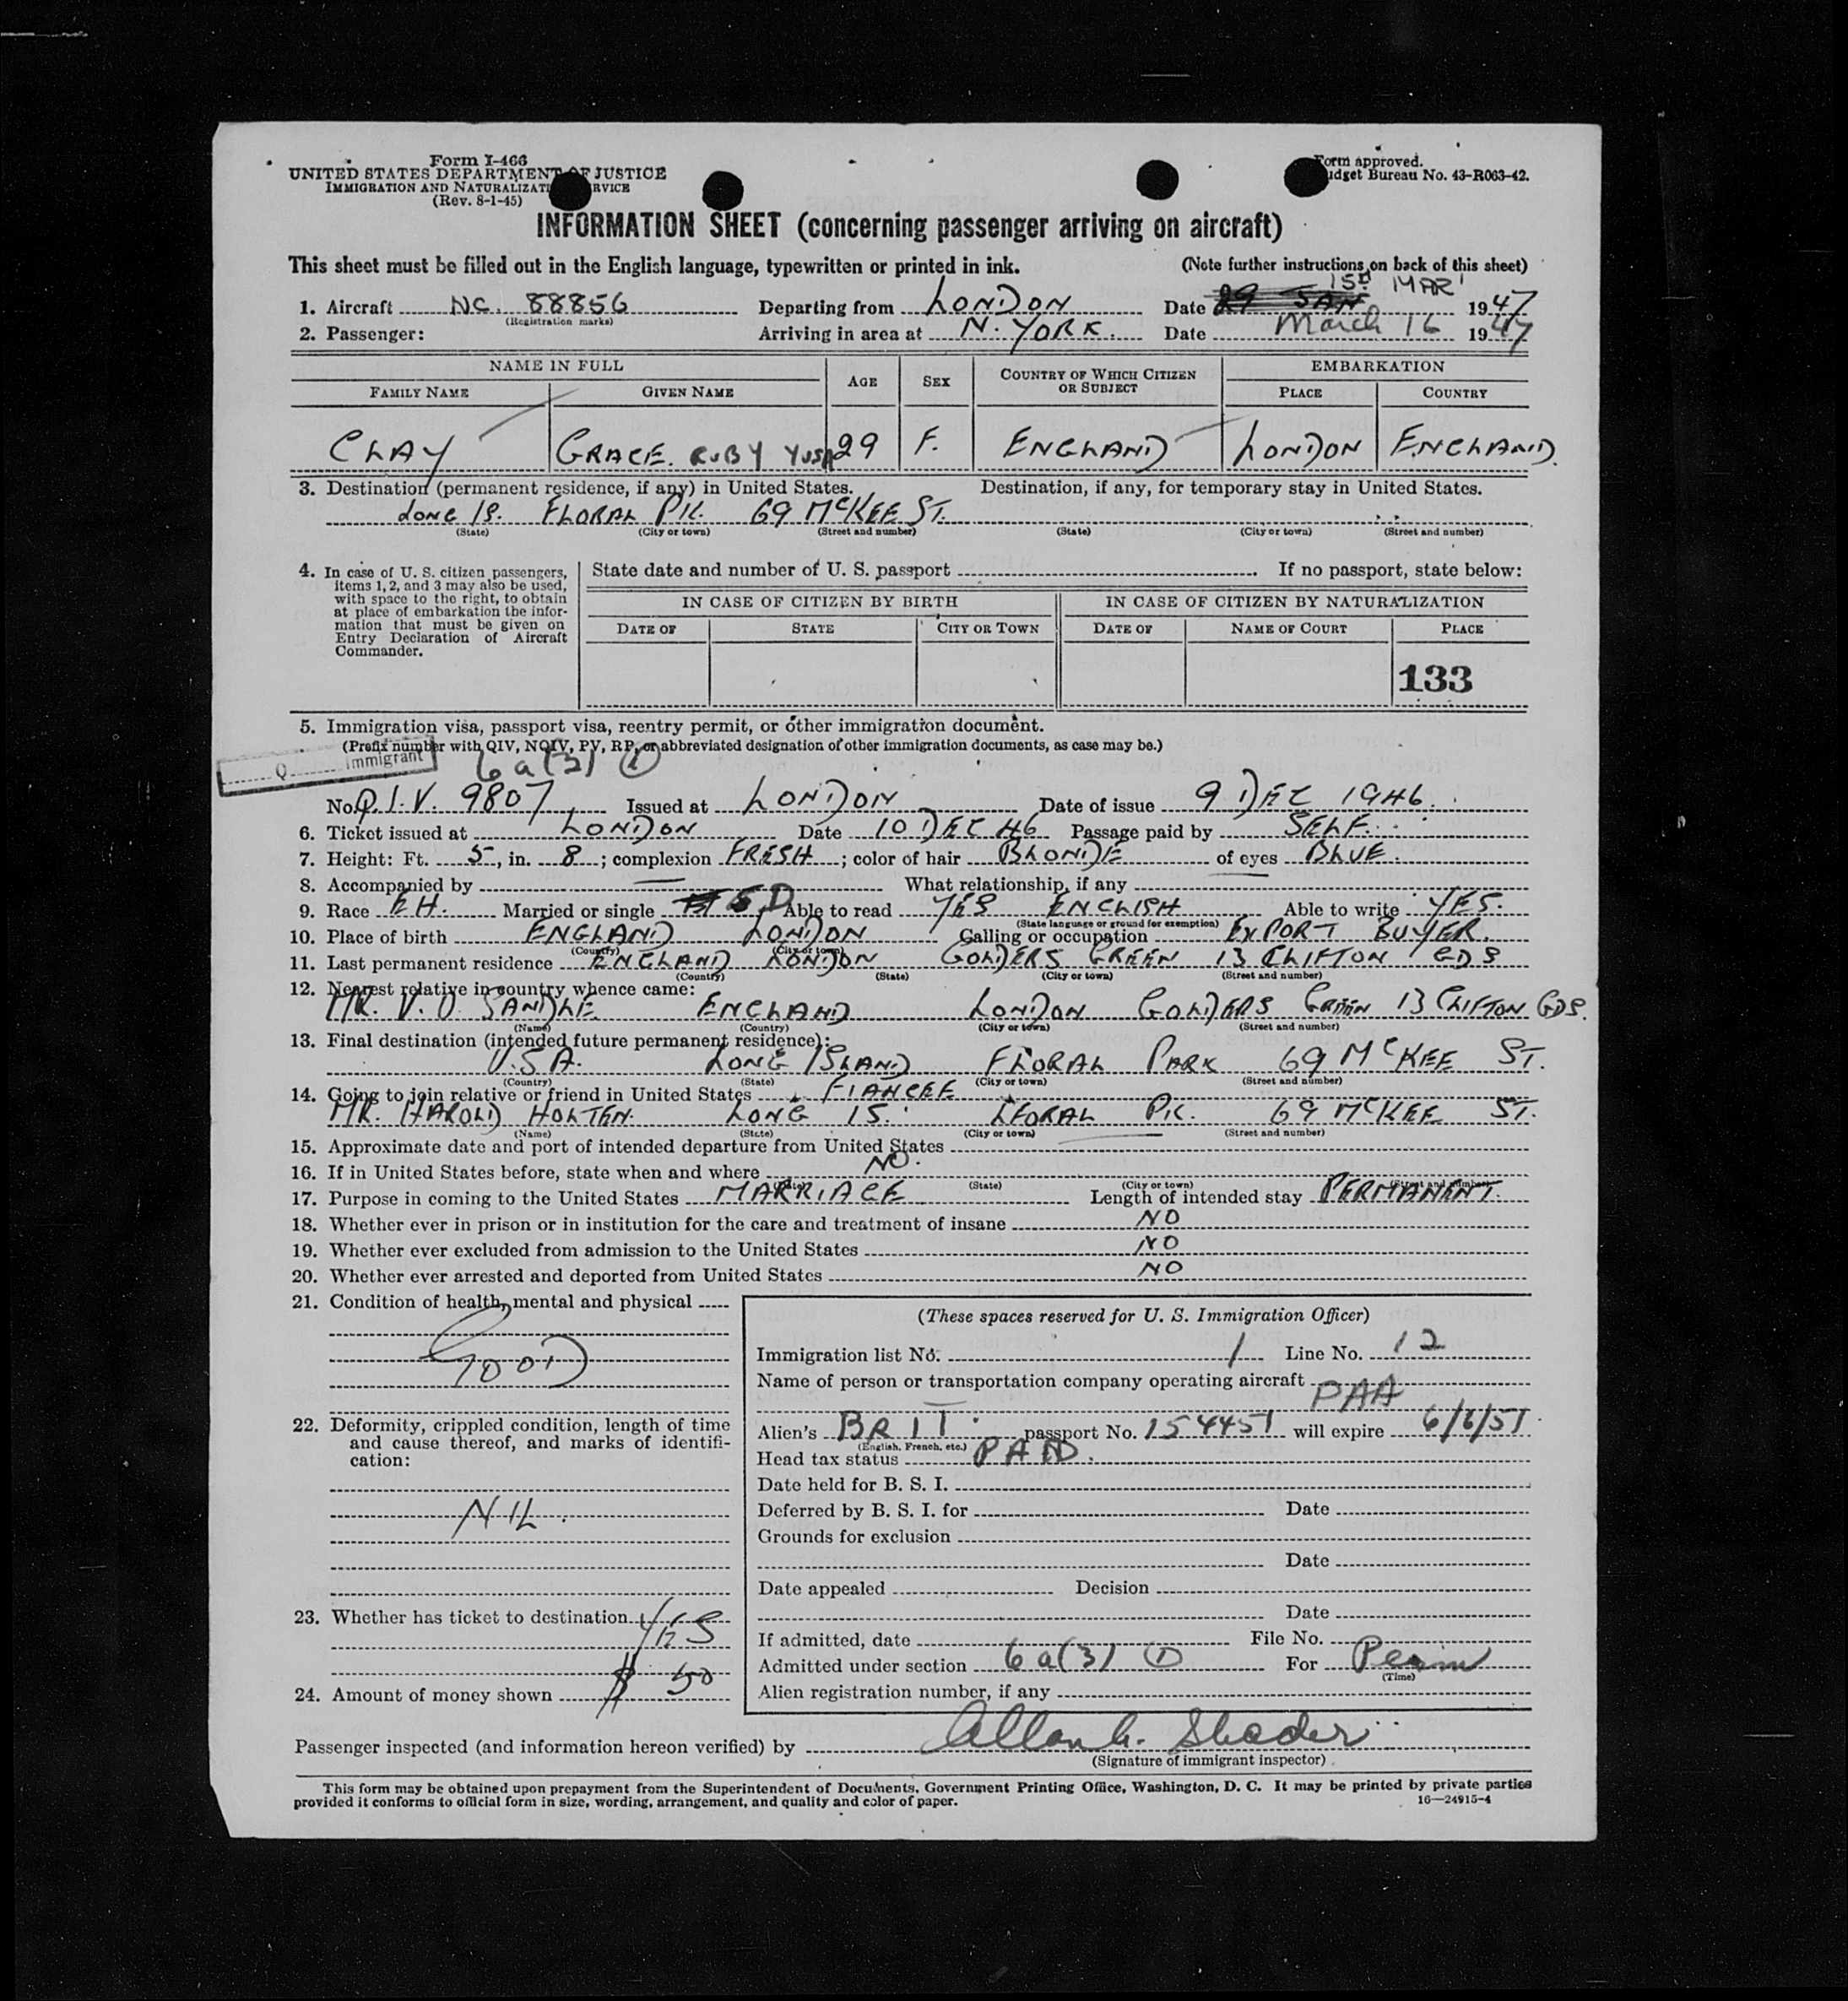 Form I-466
UNITED STATES DEPARTMENT OF JUSTICE
IMMIGRATION AND NATURALIZATION SERVICE
(Rev. 8-1-45)
Form approved.
Budget Bureau No. 43-R063-42.
INFORMATION SHEET (concerning passenger arriving on aircraft)
This sheet must be filled out in the English language, typewritten or printed in ink. (Note further instructions on back of this sheet)
1. Aircraft NC. 88856 Departing from LONDON Date 29 JAN 15 MAR 1947
(Registration marks)
2. Passenger: Arriving in area at N. YORK. Date March 16 1947
NAME IN FULL AGE SEX COUNTRY OF WHICH CITIZEN OR SUBJECT EMBARKATION
FAMILY NAME GIVEN NAME PLACE COUNTRY
CLAY GRACE. RUBY 29 F. ENGLAND LONDON ENGLAND.
3. Destination (permanent residence, if any) in United States. Destination, if any, for temporary stay in United States.
LONG IS. FLORAL PK. 69 McKEE ST.
(State) (City or town) (Street and number) (State) (City or town) (Street and number)
4. In case of U. S. citizen passengers, items 1, 2, and 3 may also be used, with space to the right, to obtain at place of embarkation the information that must be given on Entry Declaration of Aircraft Commander.
State date and number of U. S. passport If no passport, state below:
IN CASE OF CITIZEN BY BIRTH IN CASE OF CITIZEN BY NATURALIZATION
DATE OF STATE CITY OR TOWN DATE OF NAME OF COURT PLACE
133
5. Immigration visa, passport visa, reentry permit, or other immigration document.
(Prefix number with QIV, NQIV, PV, RP, or abbreviated designation of other immigration documents, as case may be.)
Q Immigrant 6a(3) 1
No. Q.I.V. 9807 Issued at LONDON Date of issue 9 DEC 1946.
6. Ticket issued at LONDON Date 10 DEC 46 Passage paid by SELF.
7. Height: Ft. 5, in. 8; complexion FRESH; color of hair BLONDE of eyes BLUE.
8. Accompanied by — What relationship, if any
9. Race EH. Married or single D Able to read YES ENGLISH Able to write YES.
(State language or ground for exemption)
10. Place of birth ENGLAND LONDON Calling or occupation EXPORT BUYER.
(Country) (City or town)
11. Last permanent residence ENGLAND LONDON GOLDERS GREEN 13 CLIFTON GDS
(Country) (State) (City or town) (Street and number)
12. Nearest relative in country whence came:
MR. V. O. SANDLE ENGLAND LONDON GOLDERS GREEN 13 CLIFTON GDS.
(Name) (Country) (City or town) (Street and number)
13. Final destination (intended future permanent residece):
U.S.A. LONG ISLAND FLORAL PARK 69 McKEE ST.
(Country) (State) (City or town) (Street and number)
14. Going to join relative or friend in United States FIANCEE
MR. HAROLD HOLTEN. LONG IS. LFORAL PK. 69 McKEE ST.
(Name) (State) (City or town) (Street and number)
15. Approximate date and port of intended departure from United States
16. If in United States before, state when and where NO.
(State) (City or town) (Street and number)
17. Purpose in coming to the United States MARRIAGE Length of intended stay PERMANENT.
18. Whether ever in prison or in institution for the care and treatment of insane NO
19. Whether ever excluded from admission to the United States NO
20. Whether ever arrested and deported from United States NO
21. Condition of health, mental and physical
GOOD
22. Deformity, crippled condition, length of time and cause thereof, and marks of identification:
NIL.
23. Whether has ticket to destination YES
24. Amount of money shown $ 50
(These spaces reserved for U. S. Immigration Officer)
Immigration list No. 1 Line No. 12
Name of person or transportation company operating aircraft
PAA
Alien's BRIT. passport No. 154451 will expire 6/6/51.
(English, French, etc.)
Head tax status PAID.
Date held for B. S. I.
Deferred by B. S. I. for Date
Grounds for exclusion
Date
Date appealed Decision
Date
If admitted, date File No.
Admitted under section 6a(3) 1 For Perm
(Time)
Alien registration number, if any
Passenger inspected (and information hereon verified) by Allan G. Shader
(Signature of immigrant inspector)
This form may be obtained upon prepayment from the Superintendent of Documents, Government Printing Office, Washington, D. C. It may be printed by private parties
provided it conforms to official form in size, wording, arrangement, and quality and color of paper. 16—24915-4